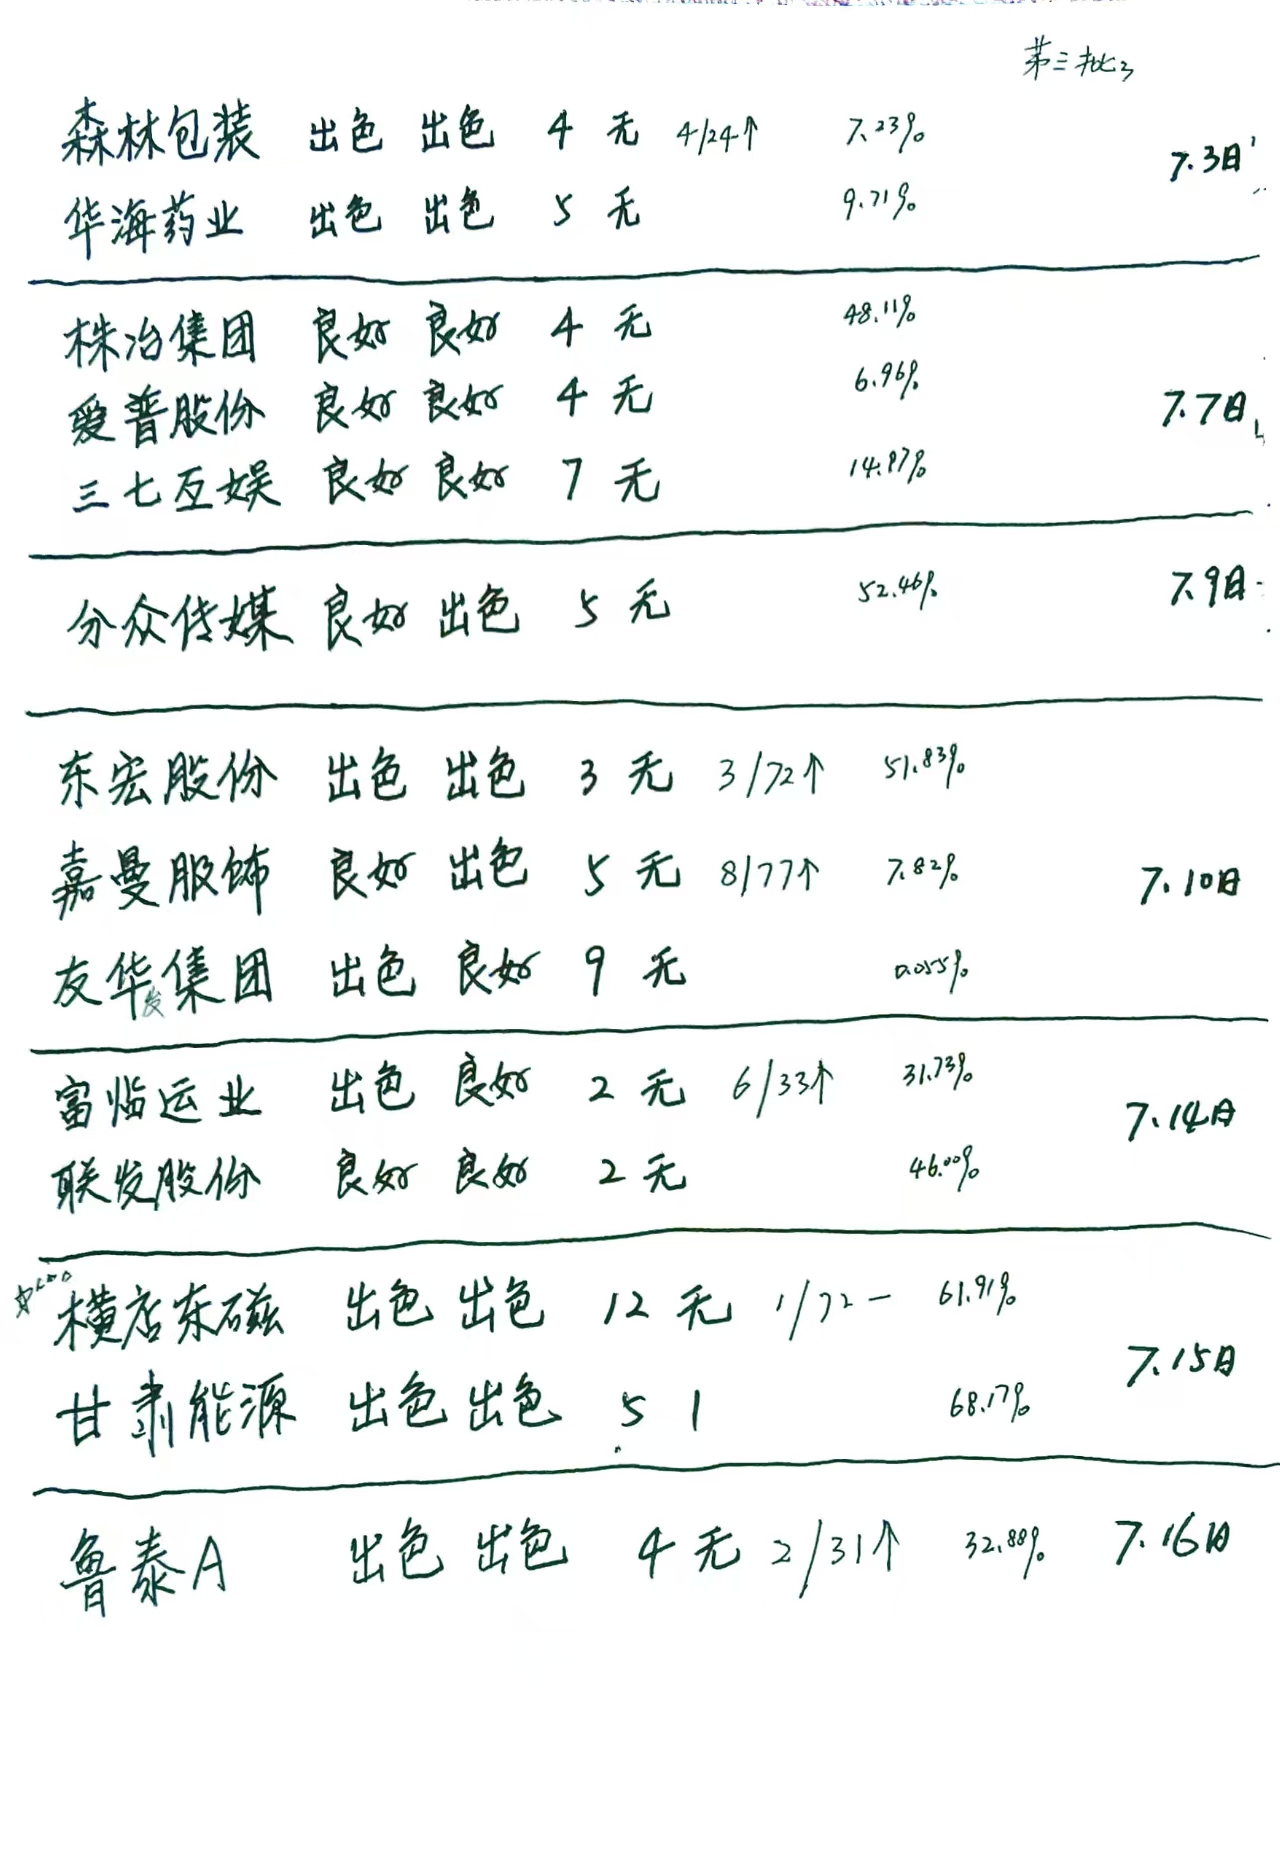 第三批3
森林包装 出色 出色 4 无 4/24↑ 7.23%
7.3日
华海药业 出色 出色 5 无 9.71%
株冶集团 良好 良好 4 无 48.11%
爱普股份 良好 良好 4 无 6.96%
7.7日
三七互娱 良好 良好 7 无 14.87%
分众传媒 良好 出色 5 无 52.46% 7.9日
东宏股份 出色 出色 3 无 3/72↑ 51.83%
嘉曼服饰 良好 出色 5 无 8/77↑ 7.82% 7.10日
友华集团 出色 良好 9 无 0.055%
发
富临运业 出色 良好 2 无 6/33↑ 31.73%
7.14日
联发股份 良好 良好 2 无 46.00%
横店东磁 出色 出色 12 无 1/72 — 61.91%
7.15日
甘肃能源 出色 出色 5 1 68.17%
鲁泰A 出色 出色 4 无 2/31↑ 32.88% 7.16日